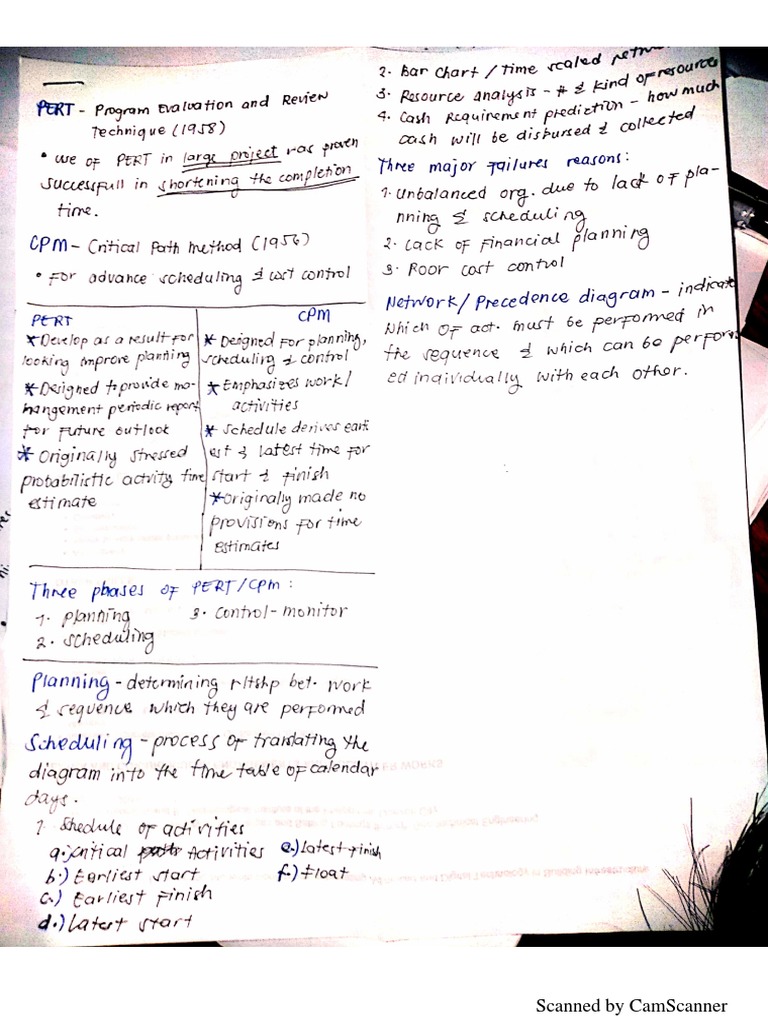 PERT - Program Evaluation and Review
Technique (1958)
• use of PERT in large project has proven
successfull in shortening the completion
time.
CPM - Critical Path Method (1956)
• For advance scheduling & cost control
PERT
* Develop as a result for
looking improve planning
* Designed to provide ma-
nangement periodic report
for future outlook
* Originally stressed
probabilistic activity time
estimate
CPM
* Designed for planning,
scheduling & control
* Emphasizes work/
activities
* Schedule derives earli
est & latest time for
start & finish
* Originally made no
provisions for time
estimates
Three phases of PERT/CPM:
1. planning 3. control-monitor
2. scheduling
Planning - determining rltshp bet. work
& sequence which they are performed
Scheduling - process of translating the
diagram into the time table of calendar
days.
1. Shedule of activities
a.) critical path Activities e.) latest finish
b.) Earliest start f.) float
c.) Earliest Finish
d.) Latest start
2. Bar Chart / Time scaled netw
3. Resource Analysis - # & kind of resource
4. Cash Requirement prediction - how much
cash will be disbursed & collected
Three major failures reasons:
1. Unbalanced org. due to lack of pla-
nning & scheduling
2. Lack of Financial planning
3. Poor cost control
Network / Precedence diagram - indicate
which of act. must be performed in
the sequence & which can be perform
ed individually with each other.
Scanned by CamScanner